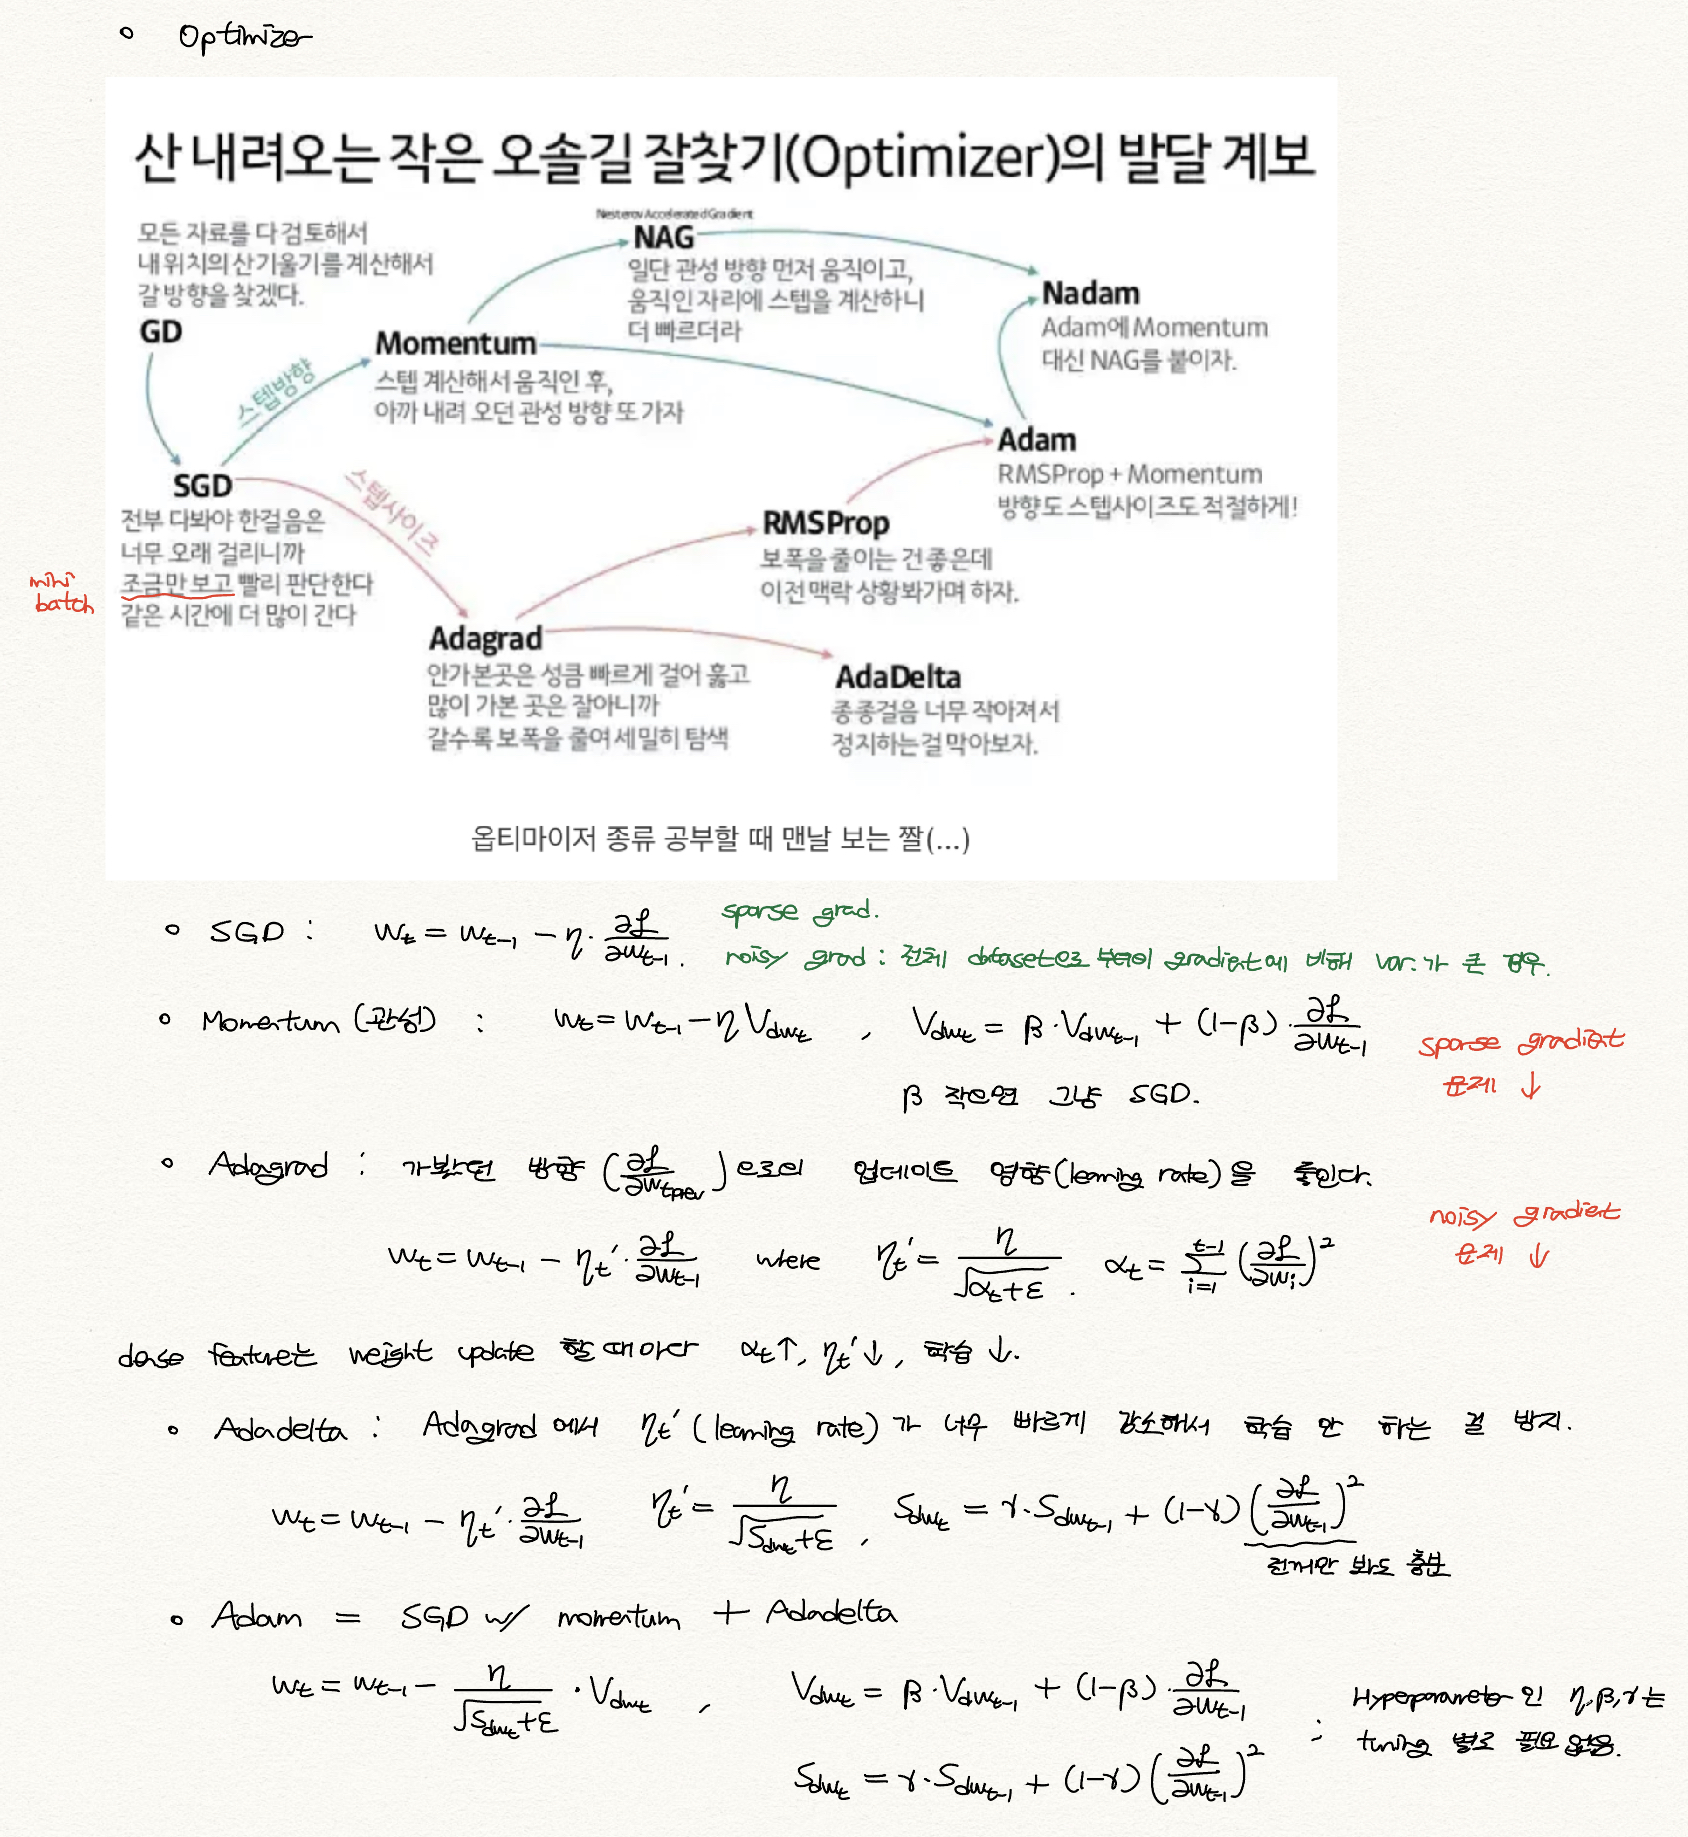 Optimizer
산 내려오는 작은 오솔길 잘찾기(Optimizer)의 발달 계보
모든 자료를 다 검토해서
내 위치의 산기울기를 계산해서
갈 방향을 찾겠다.
GD
스텝방향
Momentum
스텝 계산해서 움직인 후,
아까 내려 오던 관성 방향 또 가자
Nesterov Accelerated Gradient
NAG
일단 관성 방향 먼저 움직이고,
움직인 자리에 스텝을 계산하니
더 빠르더라
Nadam
Adam에 Momentum
대신 NAG를 붙이자.
Adam
RMSProp + Momentum
방향도 스텝사이즈도 적절하게!
SGD
전부 다봐야 한걸음은
너무 오래 걸리니까
조금만 보고 빨리 판단한다
같은 시간에 더 많이 간다
mini
batch
스텝사이즈
RMSProp
보폭을 줄이는 건 좋은데
이전 맥락 상황봐가며 하자.
Adagrad
안가본곳은 성큼 빠르게 걸어 훑고
많이 가본 곳은 잘아니까
갈수록 보폭을 줄여 세밀히 탐색
AdaDelta
종종걸음 너무 작아져서
정지하는걸 막아보자.
옵티마이저 종류 공부할 때 맨날 보는 짤(...)
SGD : w_t = w_{t-1} - η · ∂ℒ/∂w_{t-1}.
sparse grad.
noisy grad : 전체 dataset으로 부터의 gradient에 비해 var.가 큰 경우.
Momentum (관성) : w_t = w_{t-1} - η V_{dw_t} , V_{dw_t} = β · V_{dw_{t-1}} + (1-β) · ∂ℒ/∂w_{t-1}
sparse gradient
문제 ↓
β 작으면 그냥 SGD.
Adagrad : 가봤던 방향 (∂ℒ/∂w_{t prev}) 으로의 업데이트 영향(learning rate)을 줄인다.
noisy gradient
문제 ↓
w_t = w_{t-1} - η_t' · ∂ℒ/∂w_{t-1} where η_t' = η/√(α_t+ε) . α_t = Σ_{i=1}^{t-1} (∂ℒ/∂w_i)²
dense feature는 weight update 할 때마다 α_t↑, η_t'↓, 학습 ↓.
Adadelta : Adagrad 에서 η_t' (learning rate)가 너무 빠르게 감소해서 학습 안 하는 걸 방지.
w_t = w_{t-1} - η_t' · ∂ℒ/∂w_{t-1} η_t' = η/√(S_{dw_t}+ε) , S_{dw_t} = γ · S_{dw_{t-1}} + (1-γ) (∂ℒ/∂w_{t-1})²
전꺼만 봐도 충분
Adam = SGD w/ momentum + Adadelta
w_t = w_{t-1} - η/√(S_{dw_t}+ε) · V_{dw_t} , V_{dw_t} = β · V_{dw_{t-1}} + (1-β) · ∂ℒ/∂w_{t-1}
S_{dw_t} = γ · S_{dw_{t-1}} + (1-γ) (∂ℒ/∂w_{t-1})²
: Hyperparameter 인 η, β, γ는
tuning 별로 필요 없음.